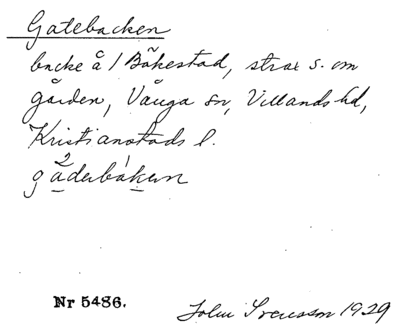 Gatebacken
backe å 1 Båkestad, strax s. om
gården, Vånga sn, Villands hd,
Kristianstads l.
gåderbákern
Nr 5486.
John Svensson 1929